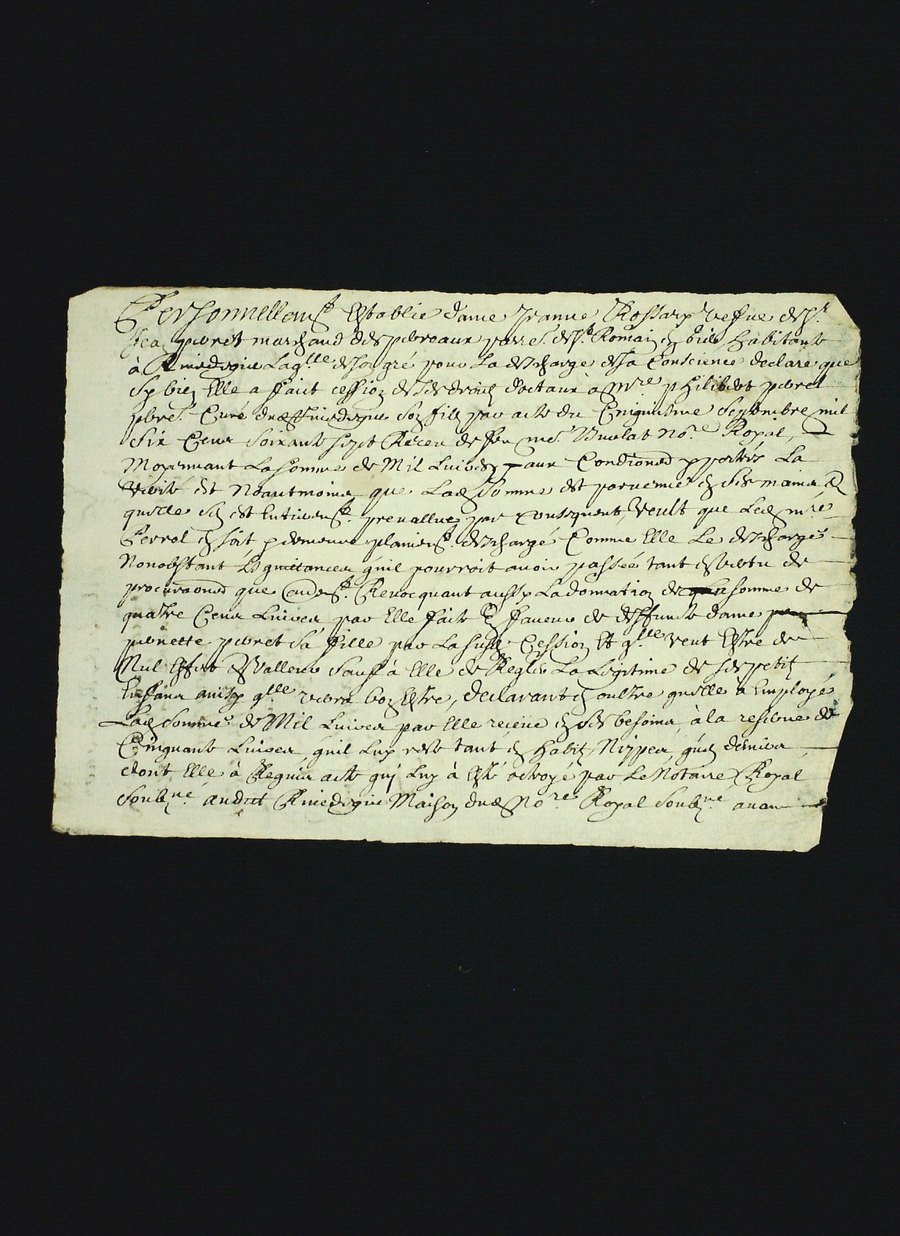 Personnellem.t Establie dame Jeanne Rossary vefve de s.r
Jean perret marchand de perreaux par.s.e de s.t Romain habitante
à Amedeique Laq.lle de son gré pour La descharge de sa Conscience declare que
sy bien Elle a faict cession de ses droitz dotaux a m.re philibert perret
pbre Curé dud. son filz par acte du Cinquiesme Septembre mil
Six Cens Soixante sept Receu de feu m.e No.re Royal,
Moyennant La somme de Mil Livres aux Conditions portées La
verité est Neantmoins que Lad. Somme est parvenue en ses mains et
quelle en est Entierem.t prevallue par consequent, veult que Led. m.re
Perret en soit et demeure plainem.t deschargé Comme Elle Le descharge
Nonobstant quittances quil pourroit avoir passée tant en vertu de
procurations que aud.t Revocquant aussy La donation de somme de
quatre Cens Livres par Elle faite En faveur de deffuncte dame
pierrette perret sa fille par La susd. Cession Et q.lle veut Estre de
Nul Effect Et Valleur sauf à Elle de Regler La Legitime de ses petitz
Enfans ainsy q.lle verra bon Estre, declarant en oultre quelle a Employé
Lad. somme de Mil Livres par Elle receue en ses besoins à la reserve de
Cinquante Livres quil Luy reste tant en habitz Nippes que deniers
dont Elle à Requis acte quj Luy à Esté octroyé par Le Notaire Royal
Soub.né audit Maison dud. No.re Royal Soub.né avant